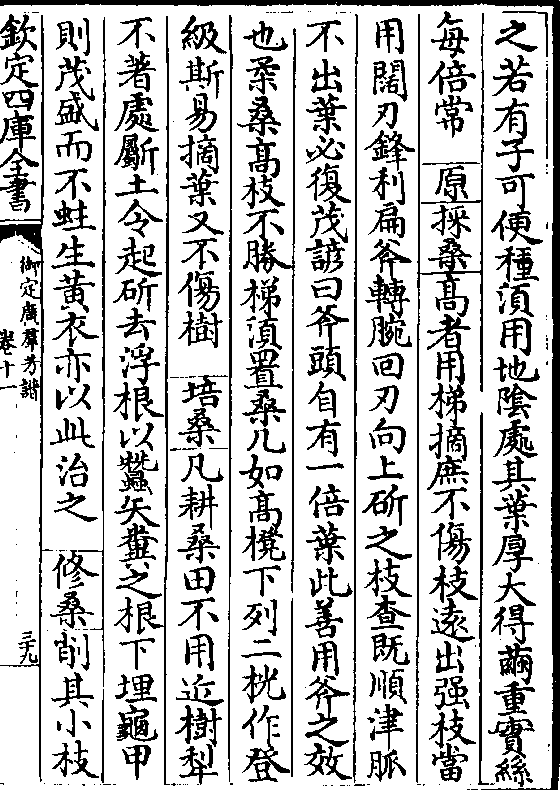 之若有子可便種須用地陰處其葉厚大得繭重實絲
每倍常 原採桑髙者用梯摘庶不傷枝逺出强枝當
用闊刃鋒利扁斧轉腕回刃向上斫之枝查既順津脈
不出葉必復茂諺曰斧頭自有一倍葉此善用斧之效
也柔桑髙枝不勝梯須置桑几如髙櫈下列二桄作登
級斯易摘葉又不傷樹 培桑凡耕桑田不用近樹犁
不著處斸土令起斫去浮根以蠶矢糞之根下埋龜甲
則茂盛而不蛀生黄衣亦以此治之 修桑削其小枝
欽定四庫全書
御定廣羣芳譜
卷十一
三十九